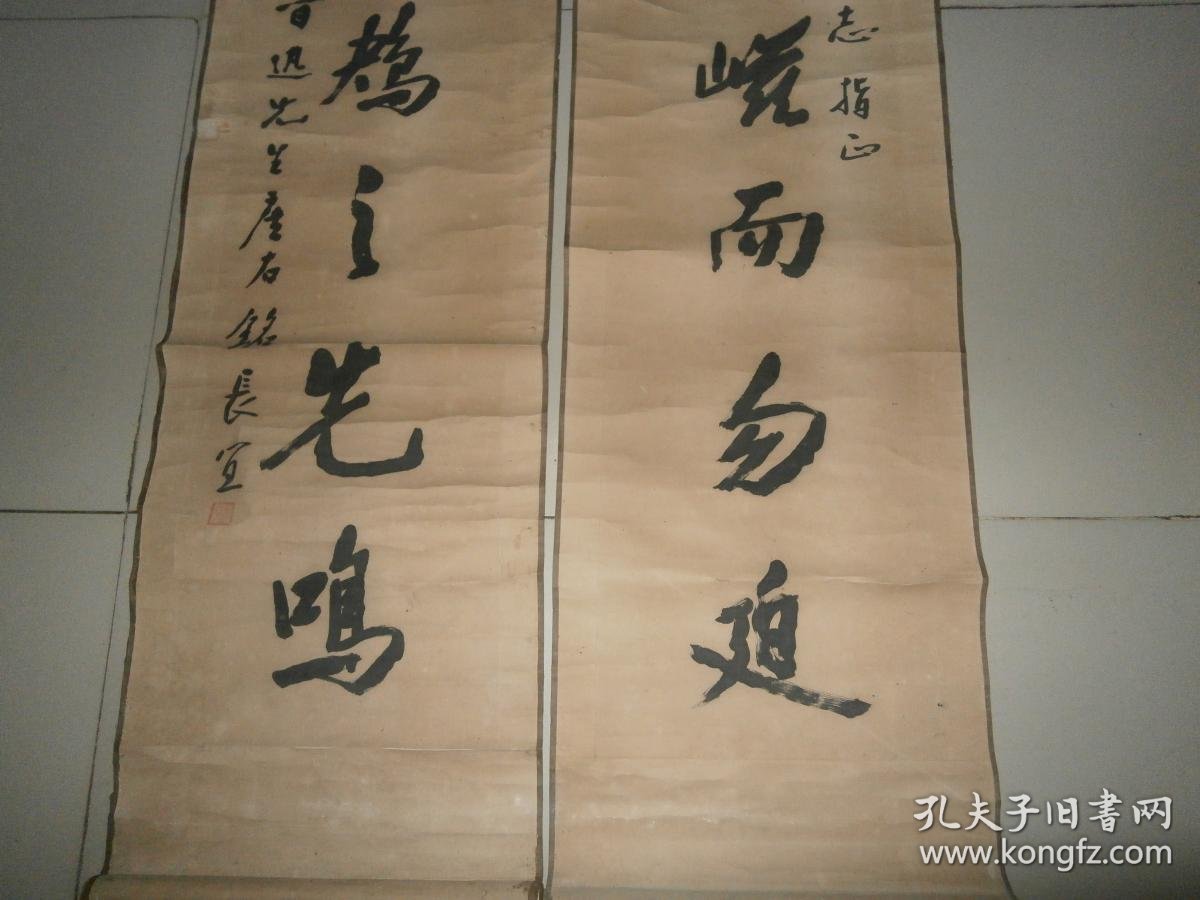 志指正
嵫而勿廹
之先鳴
迅先生座右銘長宜
孔夫子旧书网
www.kongfz.com